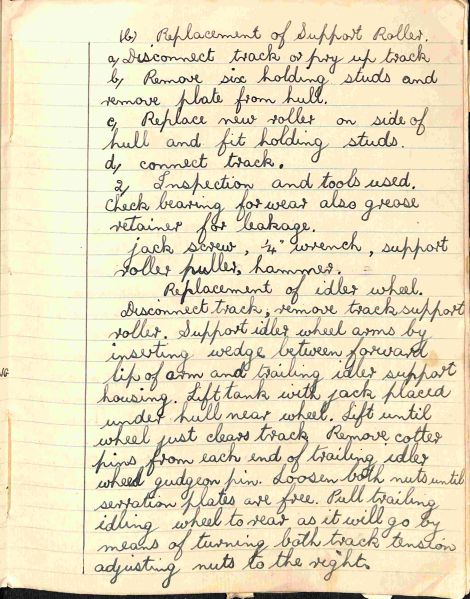 1b) Replacement of Support Roller.
a, Disconnect track or pry up track
b, Remove six holding studs and
remove plate from hull.
c, Replace new roller on side of
hull and fit holding studs.
d, connect track.
2, Inspection and tools used.
Check bearing for wear also grease
retainer for leakage.
jack screw, ¼" wrench, support
roller puller, hammer.
Replacement of idler wheel.
Disconnect track, remove track support
roller. Support idler wheel arms by
inserting wedge between forward
lip of arm and trailing idler support
housing. Lift tank with jack placed
under hull near wheel. Lift until
wheel just clears track Remove cotter
pins from each end of trailing idler
wheel gudgeon pin. Loosen both nuts until
serration plates are free. Pull trailing
idling wheel to rear as it will go by
means of turning both track tension
adjusting nuts to the right.